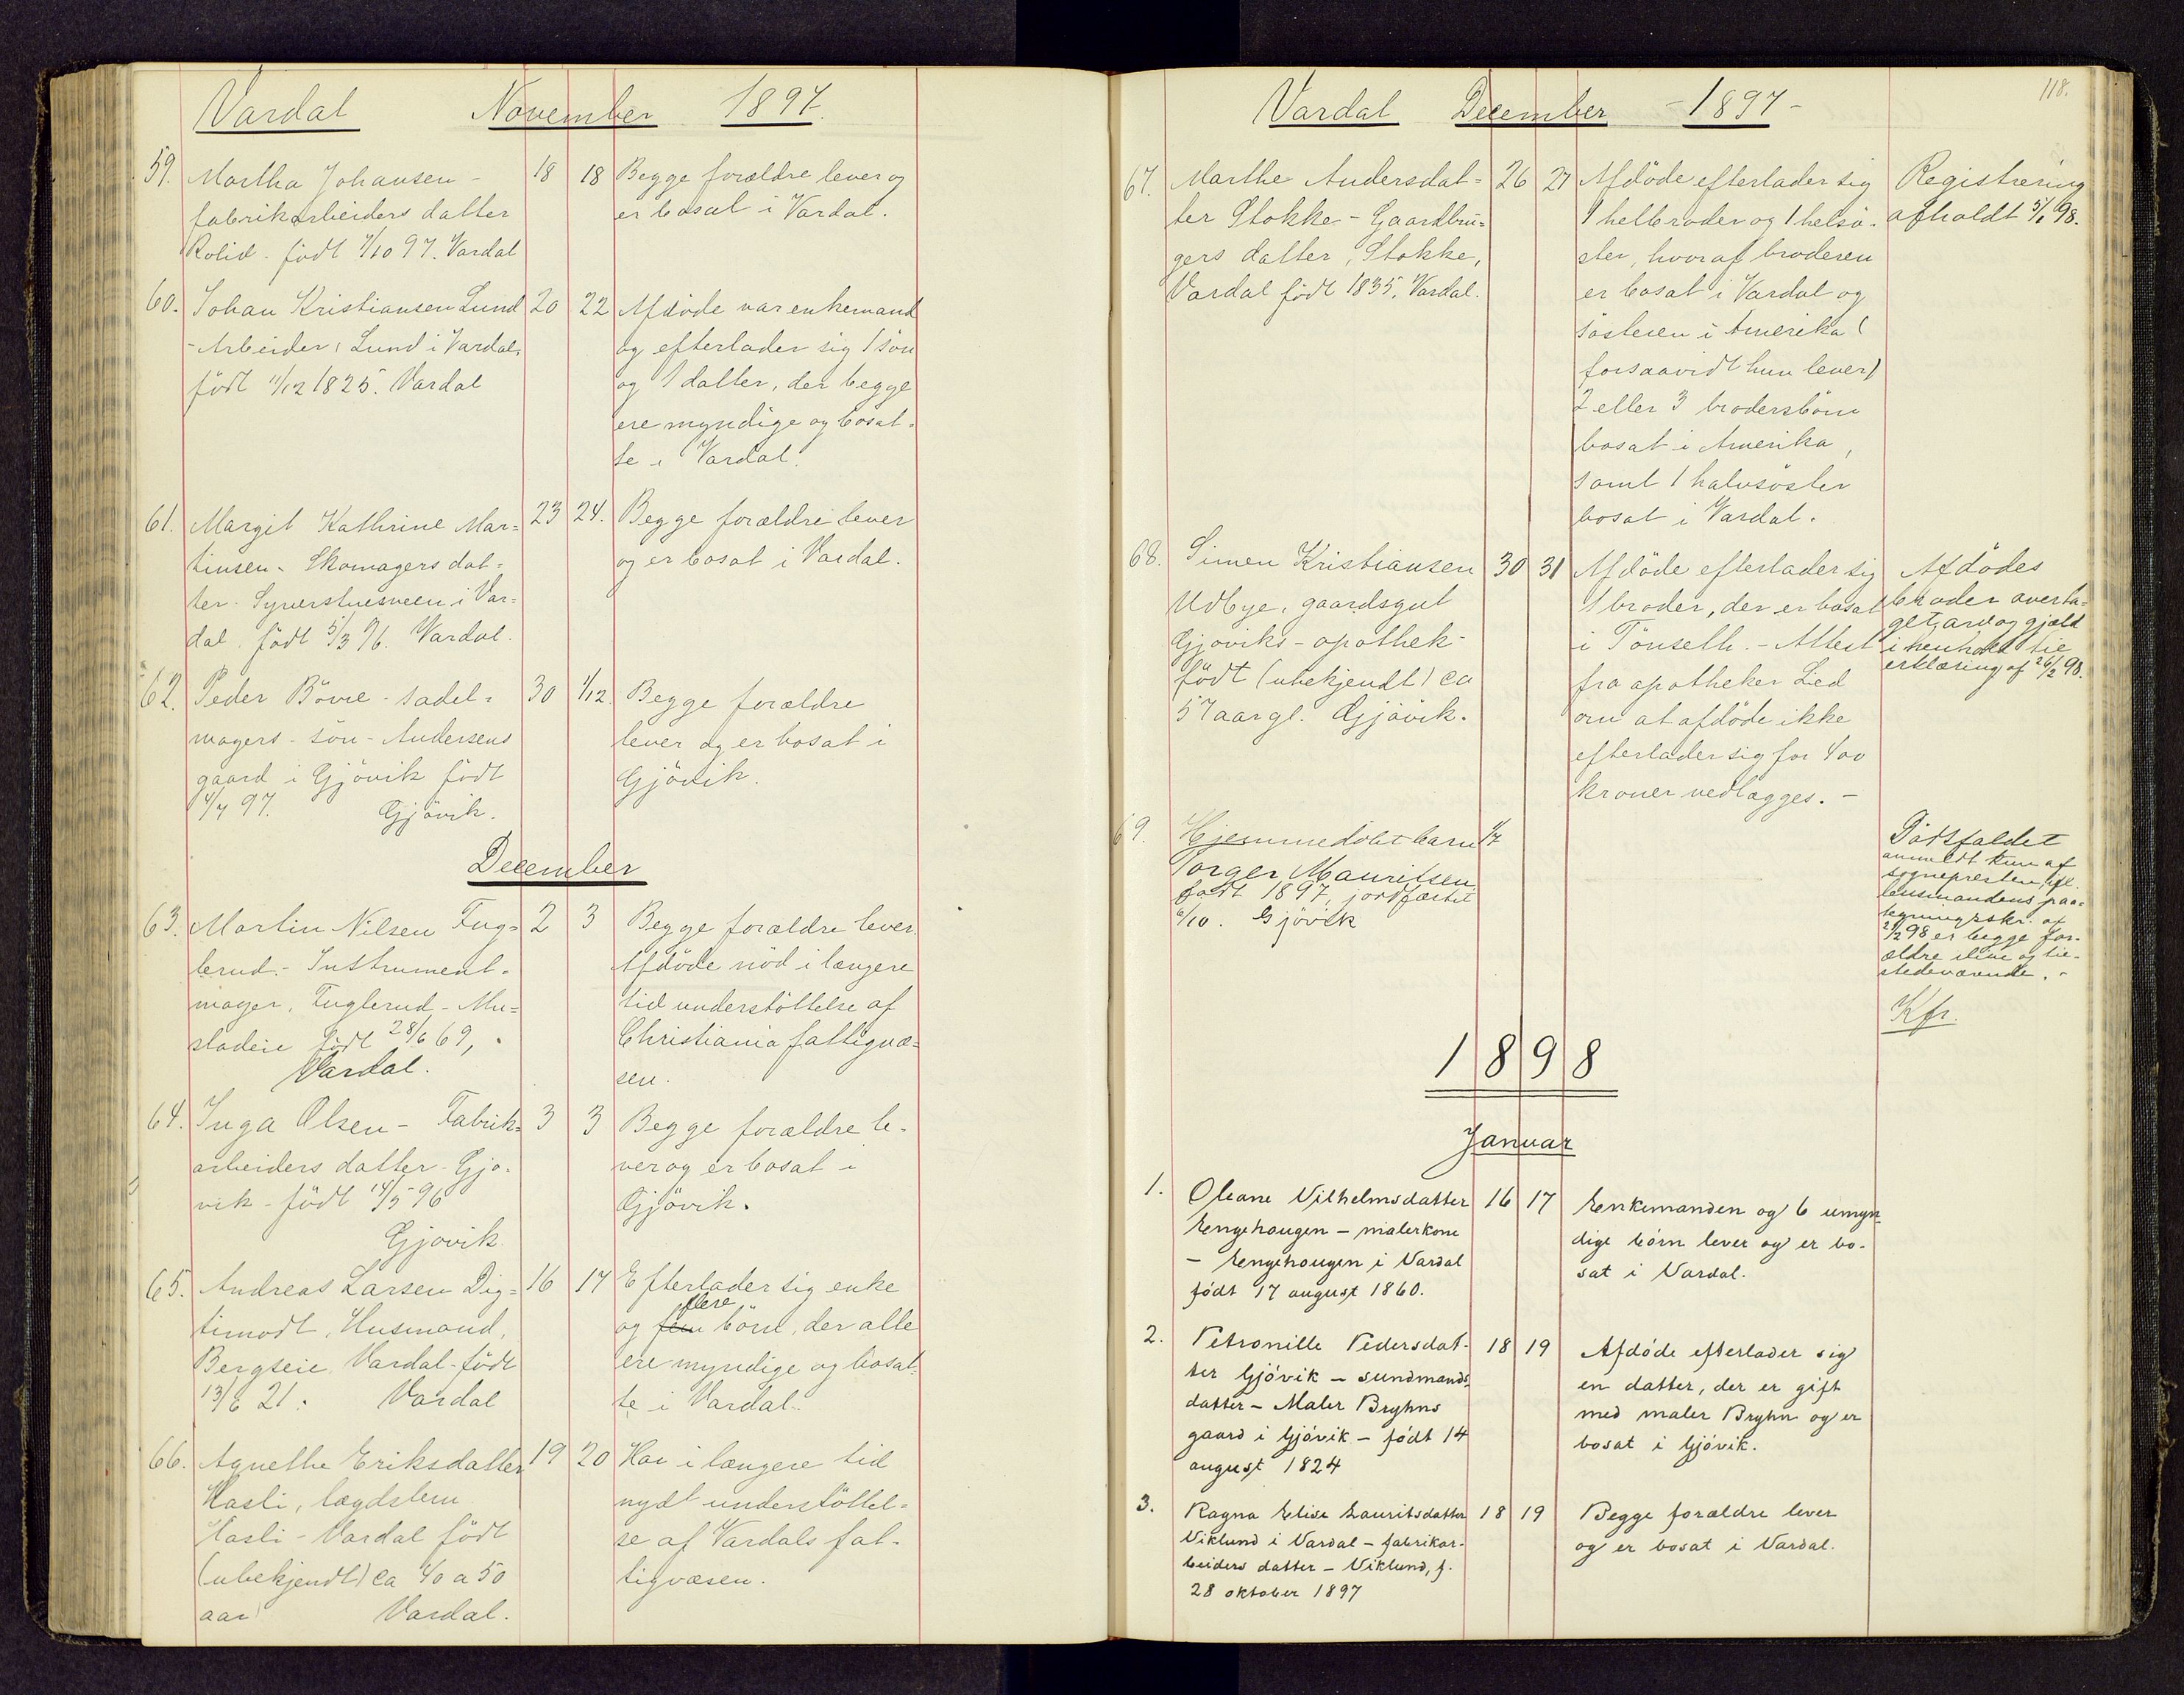 Vardal November 1897.
59. Martha Johansen - 18 18 Begge forældre lever og
fabrikarbeiders datter er bosat i Vardal.
Rolid. født 7/10 97. Vardal
60. Johan Kristiansen Lund 20 22 Afdøde var enkemand
- Arbeider, Lund i Vardal, og efterlader sig 1 søn
født 11/12 1825. Vardal og 1 datter, der begge
ere myndige og bosat-
te i Vardal.
61. Margit Kathrine Mar= 23 24. Begge forældre lever
tinsen - Skomagers dat= og er bosat i Vardal.
ter - Syverstuesveen i Var=
dal. født 5/3 96. Vardal.
62. Peder Bövre - sadel= 30 1/12. Begge forældre
magers - søn - Andersens lever og er bosat i
gaard i Gjövik født Gjövik.
4/7 97. Gjövik.
December
63. Martin Nilsen Fug= 2 3 Begge forældre lever.
lerud. - Instrument= Afdøde nød i længere
mager, Fuglerud - Mu= tid understøttelse af
stadeie født 28/6 69, Christiania fattigvæ=
Vardal. sen.
64. Inga Olsen - Fabrik= 3 3 Begge forældre le-
arbeiders datter - Gjø- ver og er bosat i
vik - født 14/5 96 Gjövik.
Gjøvik
65. Andreas Larsen Dig= 16 17 Efterlader sig enke
flere
timodt, Husmand, og fem börn, der alle
Bergseie, Vardal - født ere myndige og bosat=
13/6 21. Vardal te i Vardal.
66. Agnethe Eriksdatter 19 20 Har i længere tid
Hasli, lægdslem nydt understøttel=
Hasli - Vardal født se af Vardals fat-
(ubekjendt) ca 40 a 50 tigvæsen.
aar Vardal.
118.
Vardal December - 1897 -
67. Marthe Andersdat= 26 27 Afdøde efterlader sig Registrering
ter Stokke - Gaardbru= 1 helbroder og 1 helsø- afholdt 5/1 98.
gers datter, Stokke, ster, hvoraf broderen
Vardal født 1835. Vardal. er bosat i Vardal og
søsteren i Amerika (
forsaavidt hun lever)
2 eller 3 brodersbörn
bosat i Amerika,
samt 1 halvsøster
bosat i Vardal.
68. Simen Kristiansen 30 31 Afdøde efterlader sig Afdødes
Udbye, gaardsgut 1 broder, der er bosat broder overta-
Gjøviks - apothek - i Tönseth. - Attest get arv og gjæld
født (ubekjendt) ca fra apotheker Lied i henhold til
57 aar gl. Gjövik. om at afdøde ikke erklæring af 26/2 98.
efterlader sig for 400
kroner vedlægges. -
69. Hjemmedøbt barn 1/7 Dødsfaldet
Torger Mauritsen anmeldt kun af
født 1897, jordfæstet sognepresten, ifl.
6/10. Gjövik lensmandens paa-
tegningsskr. af
21/2 98 er begge for-
ældre ilive og til-
stedeværende. -
Kfr.
1898
Januar
1. Oleane Vilhelmsdatter 16 17 Enkemanden og 6 umyn-
Engehaugen - malerkone dige børn lever og er bo-
- Engehaugen i Vardal sat i Vardal.
født 17 august 1860.
2. Petronille Pedersdat- 18 19 Afdøde efterlader sig
ter Gjövik - sundmands- en datter, der er gift
datter - Maler Bryhns med maler Bryhn og er
gaard i Gjøvik - født 14 bosat i Gjøvik.
august 1824
3. Ragna Elise Lauritsdatter 18 19 Begge forældre lever
Viklund i Vardal - fabrikar- og er bosat i Vardal.
beiders datter - Viklund, f.
28 oktober 1897